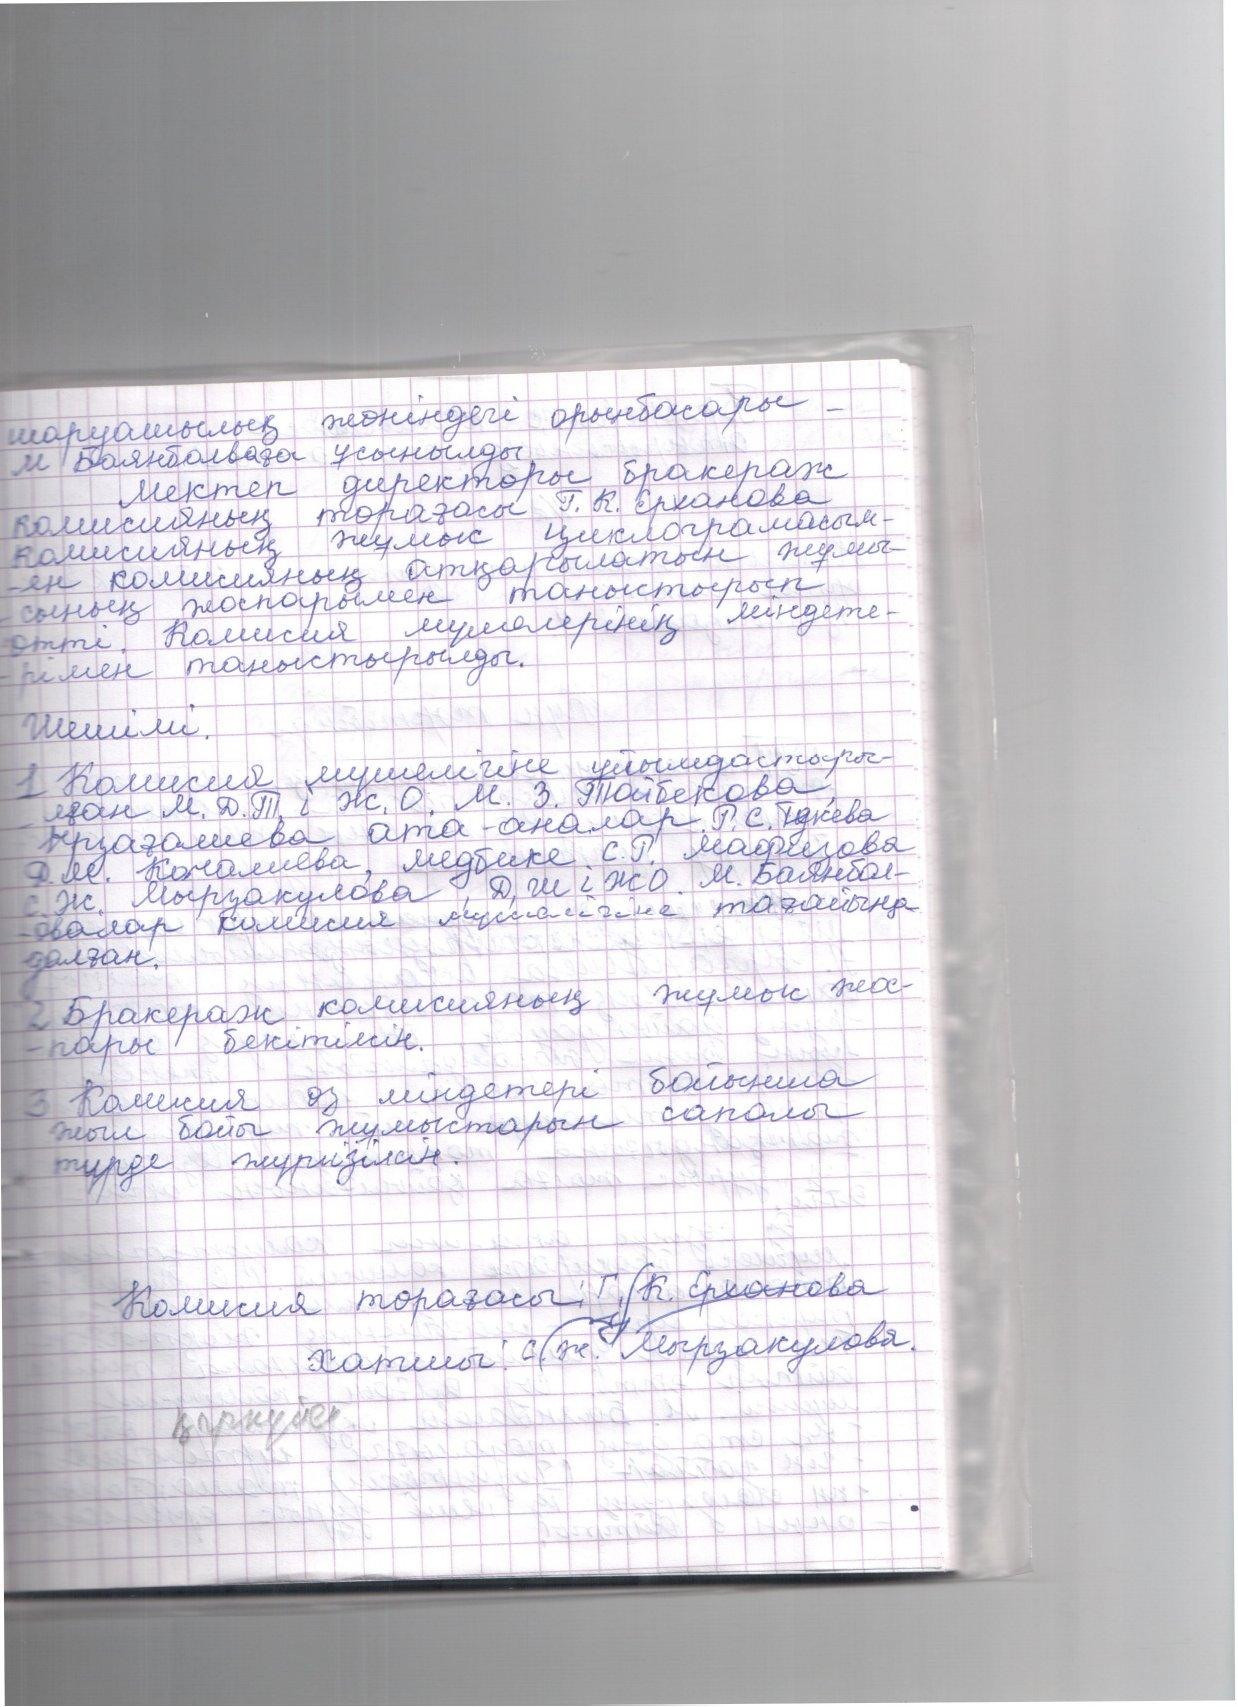 шаруашылық жөніндегі орынбасары –
М Баянбаеваға ұсынылды
Мектеп директоры бракераж
комисияның төрағасы Г. К. Ерханова
комисияның жұмыс циклограмасым-
-ен комисияның атқарылатын жұмы-
-сының жоспарымен таныстырып
өтті. Комисия мүшелерінің міндете-
-рімен таныстырылды.
Шешімі.
1 Комисия мүшелігіне ұйымдастыры-
-лған М. Д. Т. І Ж. О. М. З. Тойбекова,
ата-аналар Г. С.
Д. М. Кочалиева, медбике С. Г. Мафизова
С. Ж. Мырзакулова, Д. Ш І ЖО. М. Баянбае-
-овалар комисия мүшелігіне тағайында
далған.
2 Бракераж комисияның жұмыс жос-
-пары бекітілсін.
3 Комисия өз міндетері бойынша
жыл бойы жұмыстарын сапалы
түрде жүргізілсін.
Комисия төрағасы: Г. К. Ерханова
Хатшы: С. Ж. Мырзакулова.
қыркүйек